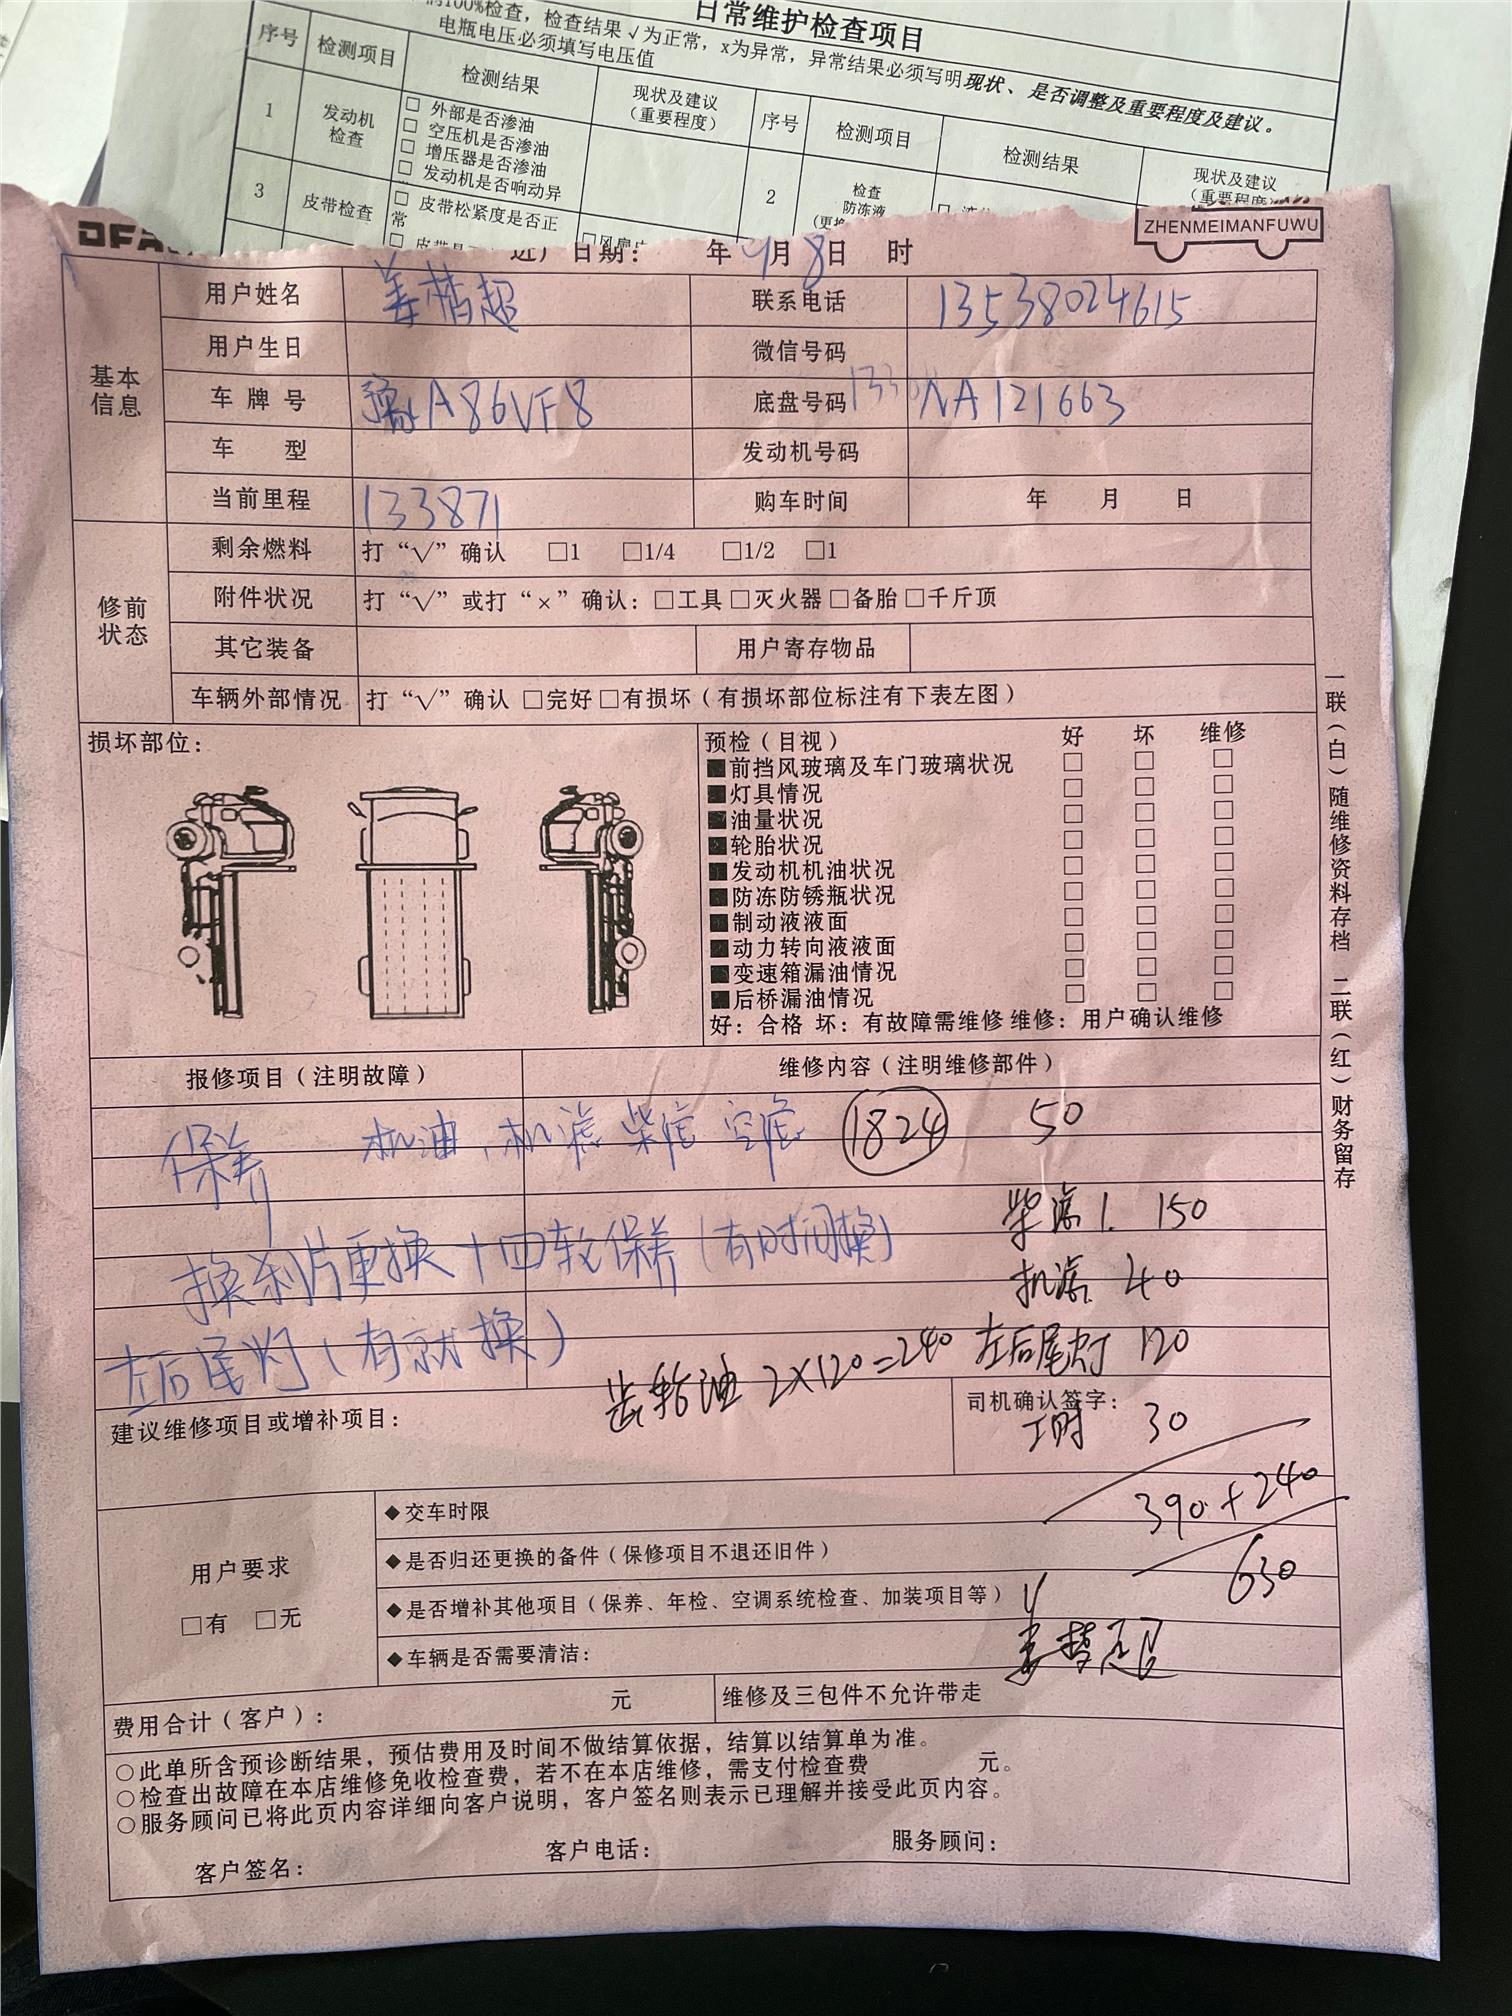 日常维护检查项目
100%检查，检查结果√为正常，x为异常，异常结果必须写明现状、是否调整及重要程度及建议。
电瓶电压必须填写电压值
序号 检测项目 检测结果 现状及建议（重要程度） 序号 检测项目 检测结果 现状及建议（重要程度）
1 发动机检查 □ 外部是否渗油
□ 空压机是否渗油
□ 增压器是否渗油
□ 发动机是否响动异
2 检查防冻液
3 皮带检查 □ 皮带松紧度是否正常
ZHENMEIMANFUWU
进厂日期： 年 4月8日 时
基本信息
用户姓名 联系电话 13538024615
用户生日 微信号码
车牌号 豫A86VF8 底盘号码 NA121663
车型 发动机号码
当前里程 133871 购车时间 年 月 日
修前状态
剩余燃料 打“√”确认 □1 □1/4 □1/2 □1
附件状况 打“√”或打“×”确认：□工具□灭火器□备胎□千斤顶
其它装备 用户寄存物品
车辆外部情况 打“√”确认 □完好□有损坏（有损坏部位标注有下表左图）
损坏部位： 预检（目视） 好 坏 维修
■前挡风玻璃及车门玻璃状况 □ □ □
■灯具情况 □ □ □
■油量状况 □ □ □
■轮胎状况 □ □ □
■发动机机油状况 □ □ □
■防冻防锈瓶状况 □ □ □
■制动液液面 □ □ □
■动力转向液液面 □ □ □
■变速箱漏油情况 □ □ □
■后桥漏油情况 □ □ □
好：合格 坏：有故障需维修 维修：用户确认维修
一联（白）随维修资料存档 二联（红）财务留存
报修项目（注明故障） 维修内容（注明维修部件）
保养 机油，机滤 柴滤 空滤 1824 50
柴滤1. 150
换刹片更换十四轮保养（有时间换）
机滤 40
左后尾灯（有就换）
齿轮油 2X120=240 左后尾灯 120
建议维修项目或增补项目： 司机确认签字：
工时 30
390+240
630
用户要求
□有 □无
◆交车时限
◆是否归还更换的备件（保修项目不退还旧件）
◆是否增补其他项目（保养、年检、空调系统检查、加装项目等）
◆车辆是否需要清洁：
费用合计（客户）： 元 维修及三包件不允许带走
○此单所含预诊断结果，预估费用及时间不做结算依据，结算以结算单为准。
○检查出故障在本店维修免收检查费，若不在本店维修，需支付检查费 元。
○服务顾问已将此页内容详细向客户说明，客户签名则表示已理解并接受此页内容。
客户签名： 客户电话： 服务顾问：